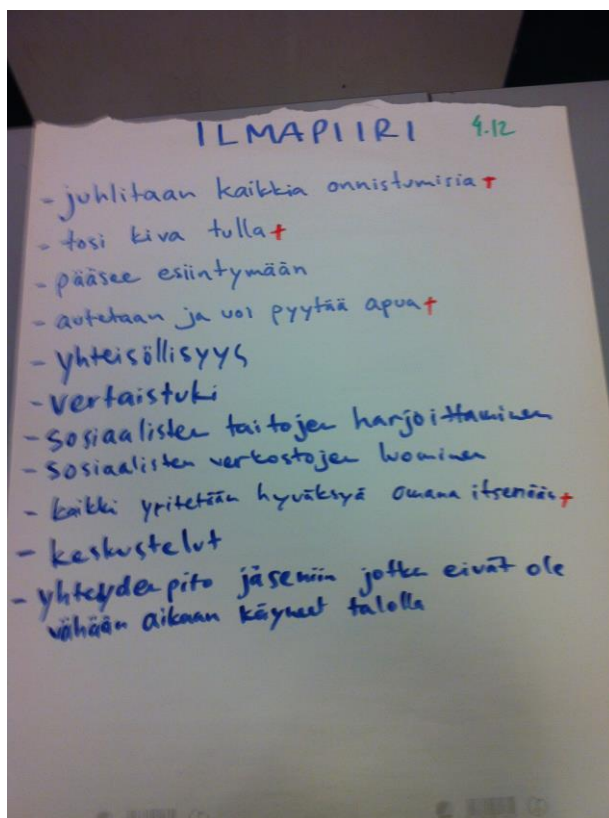 ILMAPIIRI 4.12
- juhlitaan kaikkia onnistumisia +
- tosi kiva tulla +
- pääsee esiintymään
- autetaan ja voi pyytää apua +
- yhteisöllisyys
- vertaistuki
- sosiaalisten taitojen harjoittaminen
- sosiaalisten verkostojen luominen
- kaikki yritetään hyväksyä omana itsenään +
- keskustelut
- yhteydenpito jäseniin jotka eivät ole
vähään aikaan käyneet talolla